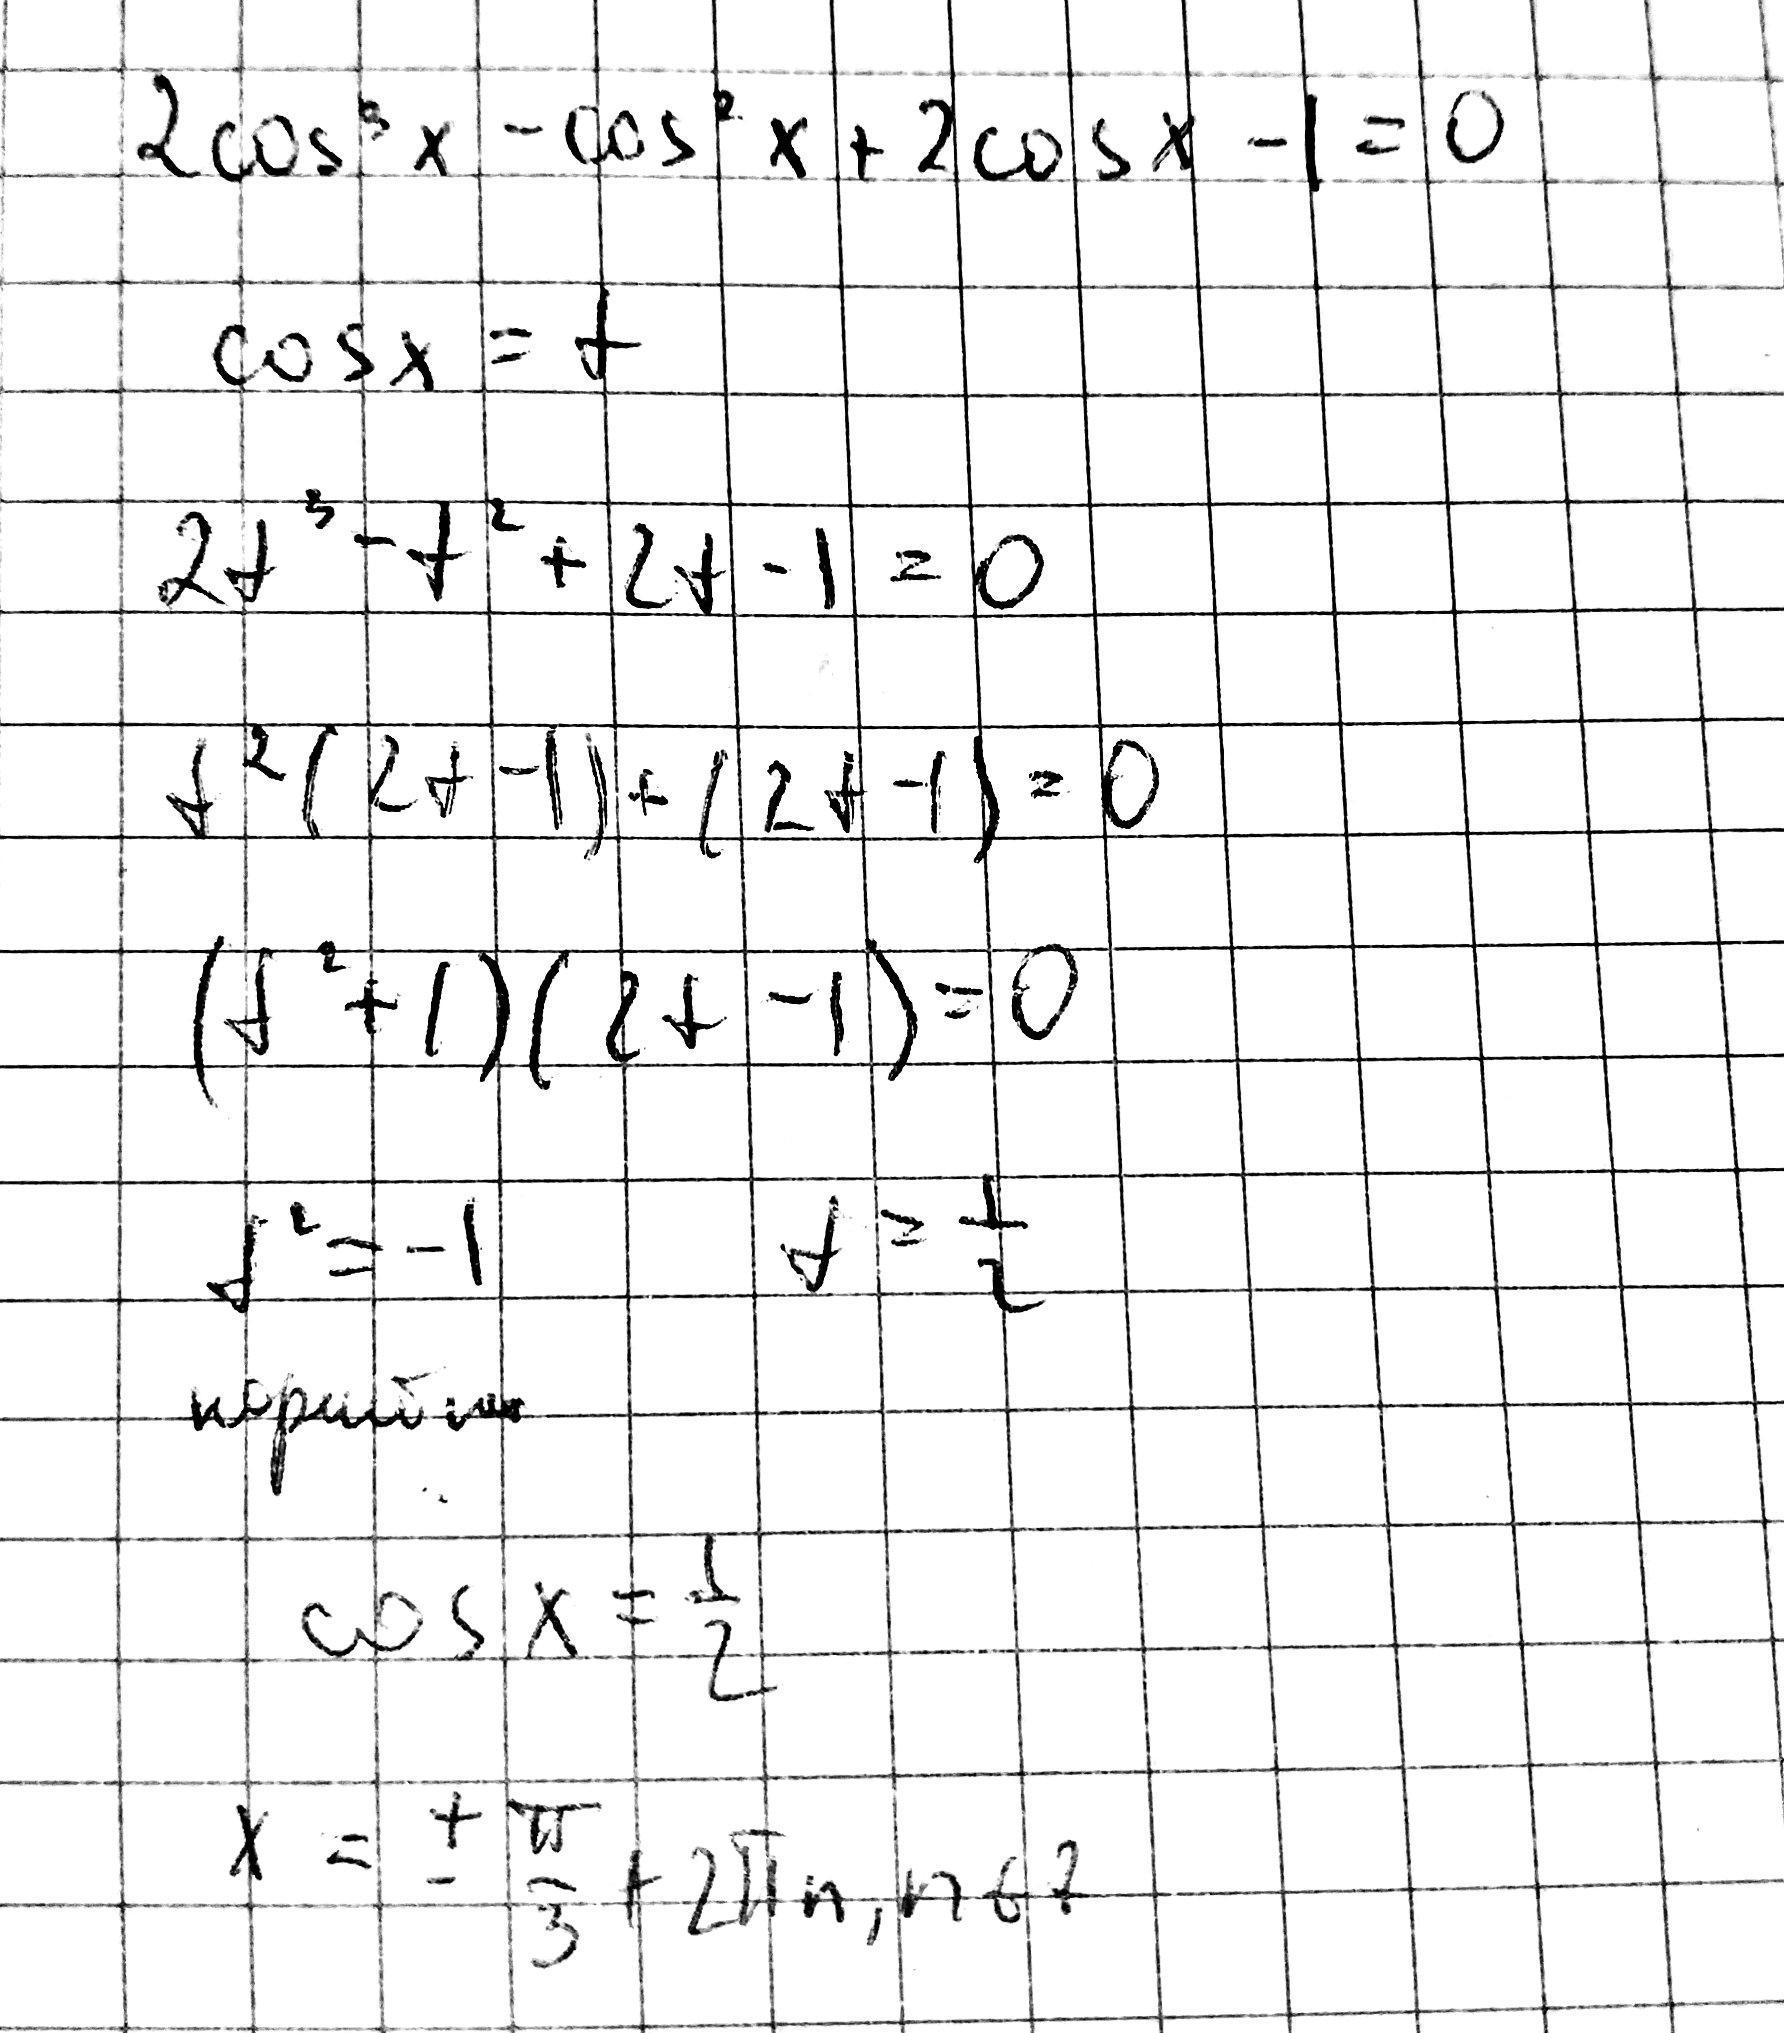 2cos³x - cos²x + 2cosx - 1 = 0
cosx = t
2t³ - t² + 2t - 1 = 0
t²(2t - 1) + (2t - 1) = 0
(t² + 1)(2t - 1) = 0
t² = -1 t = 1/2
корней нет
cosx = 1/2
x = ± π/3 + 2πn, n ∈ Z